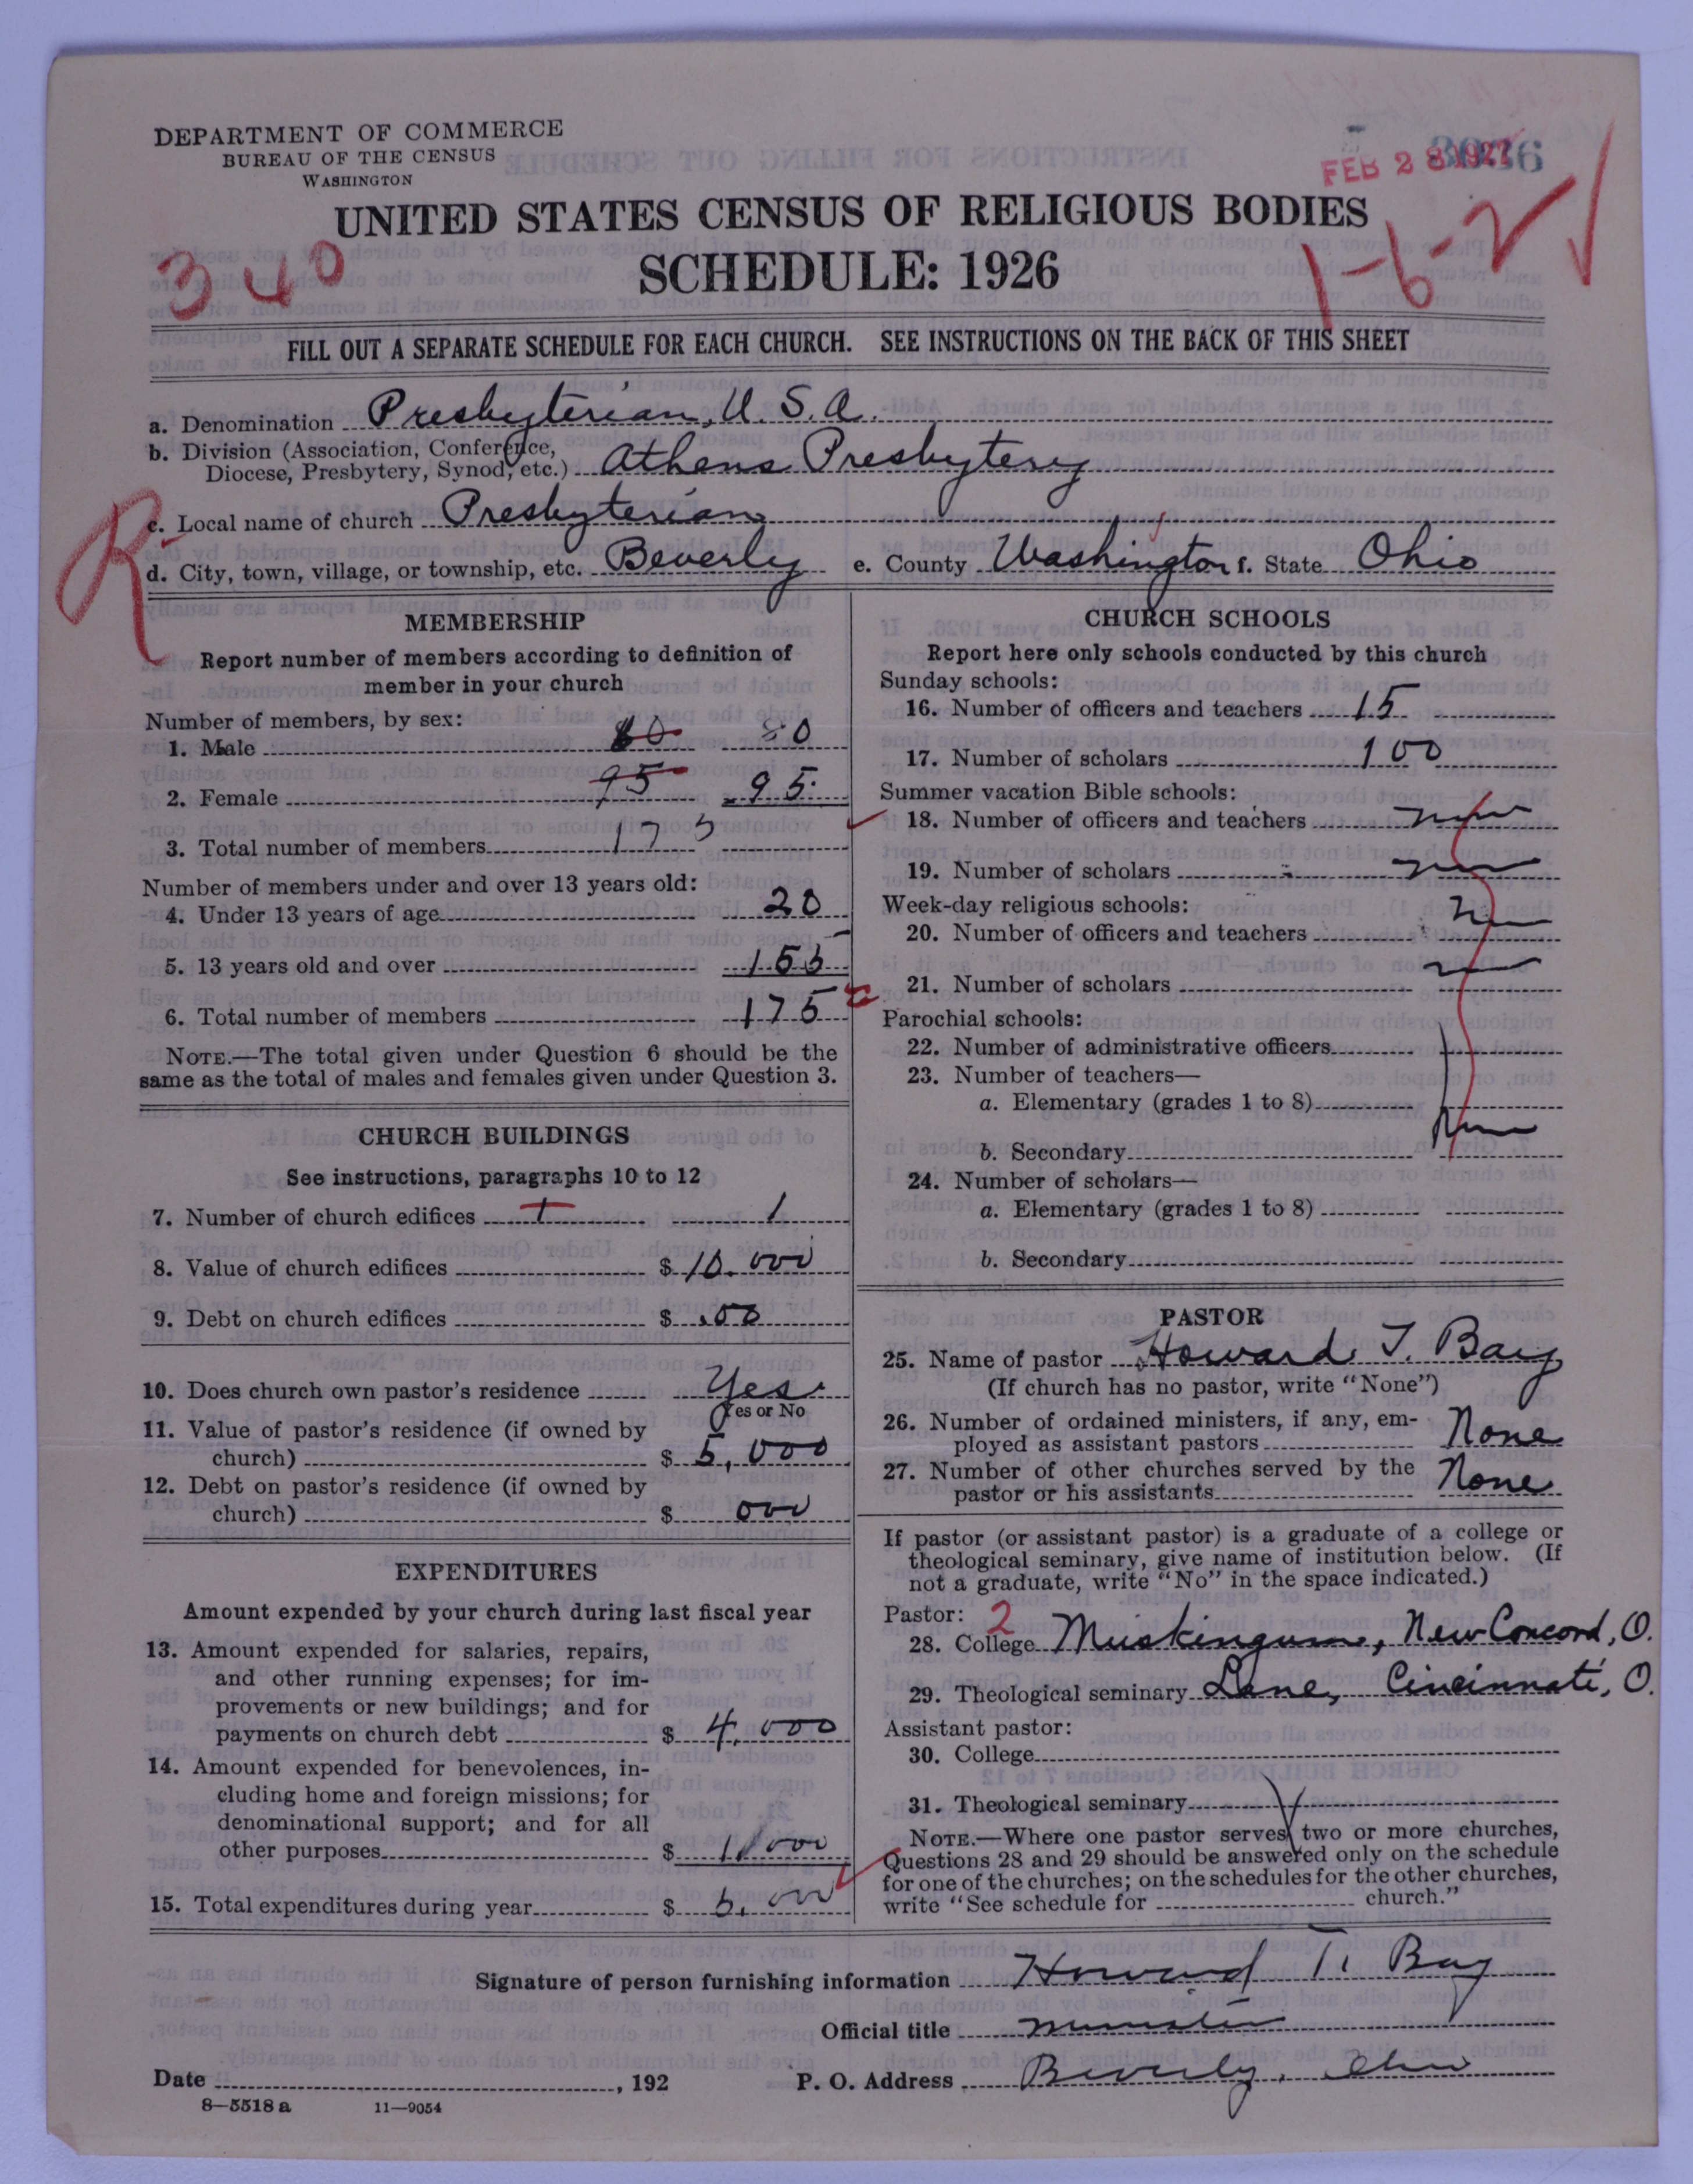 DEPARTMENT OF COMMERCE
BUREAU OF THE CENSUS
WASHINGTON
FEB 28 1927
UNITED STATES CENSUS OF RELIGIOUS BODIES
SCHEDULE: 1926
340
1-6-2
FILL OUT A SEPARATE SCHEDULE FOR EACH CHURCH. SEE INSTRUCTIONS ON THE BACK OF THIS SHEET
a. Denomination Presbyterian, U.S.A.
b. Division (Association, Conference,
Diocese, Presbytery, Synod, etc.) Athens Presbytery
R
c. Local name of church Presbyterian
d. City, town, village, or township, etc. Beverly e. County Washington f. State Ohio
MEMBERSHIP
Report number of members according to definition of
member in your church
Number of members, by sex:
1. Male 80 80
2. Female 95 95
3. Total number of members 175
Number of members under and over 13 years old:
4. Under 13 years of age 20
5. 13 years old and over 155
6. Total number of members 175
NOTE.—The total given under Question 6 should be the
same as the total of males and females given under Question 3.
CHURCH BUILDINGS
See instructions, paragraphs 10 to 12
7. Number of church edifices 1 1
8. Value of church edifices $ 10.000
9. Debt on church edifices $ .00
10. Does church own pastor's residence Yes
Yes or No
11. Value of pastor's residence (if owned by
church) $ 5,000
12. Debt on pastor's residence (if owned by
church) $ 000
EXPENDITURES
Amount expended by your church during last fiscal year
13. Amount expended for salaries, repairs,
and other running expenses; for im-
provements or new buildings; and for
payments on church debt $ 4,000
14. Amount expended for benevolences, in-
cluding home and foreign missions; for
denominational support; and for all
other purposes $ 1,000
15. Total expenditures during year $ 5,000
CHURCH SCHOOLS
Report here only schools conducted by this church
Sunday schools:
16. Number of officers and teachers 15
17. Number of scholars 100
Summer vacation Bible schools:
18. Number of officers and teachers
19. Number of scholars
Week-day religious schools:
20. Number of officers and teachers
21. Number of scholars
Parochial schools:
22. Number of administrative officers
23. Number of teachers—
a. Elementary (grades 1 to 8)
None
b. Secondary
24. Number of scholars—
a. Elementary (grades 1 to 8)
b. Secondary
PASTOR
25. Name of pastor Howard T. Bay
(If church has no pastor, write "None")
26. Number of ordained ministers, if any, em-
ployed as assistant pastors None
27. Number of other churches served by the
pastor or his assistants None
If pastor (or assistant pastor) is a graduate of a college or
theological seminary, give name of institution below. (If
not a graduate, write "No" in the space indicated.)
Pastor: 2
28. College Muskingum, New Concord, O.
29. Theological seminary Lane, Cincinnati, O.
Assistant pastor:
30. College
31. Theological seminary
NOTE.—Where one pastor serves two or more churches,
Questions 28 and 29 should be answered only on the schedule
for one of the churches; on the schedules for the other churches,
write "See schedule for church."
Signature of person furnishing information Howard T. Bay
Official title Minister
Date , 192 P. O. Address Beverly, Ohio
8—5518 a 11—9054